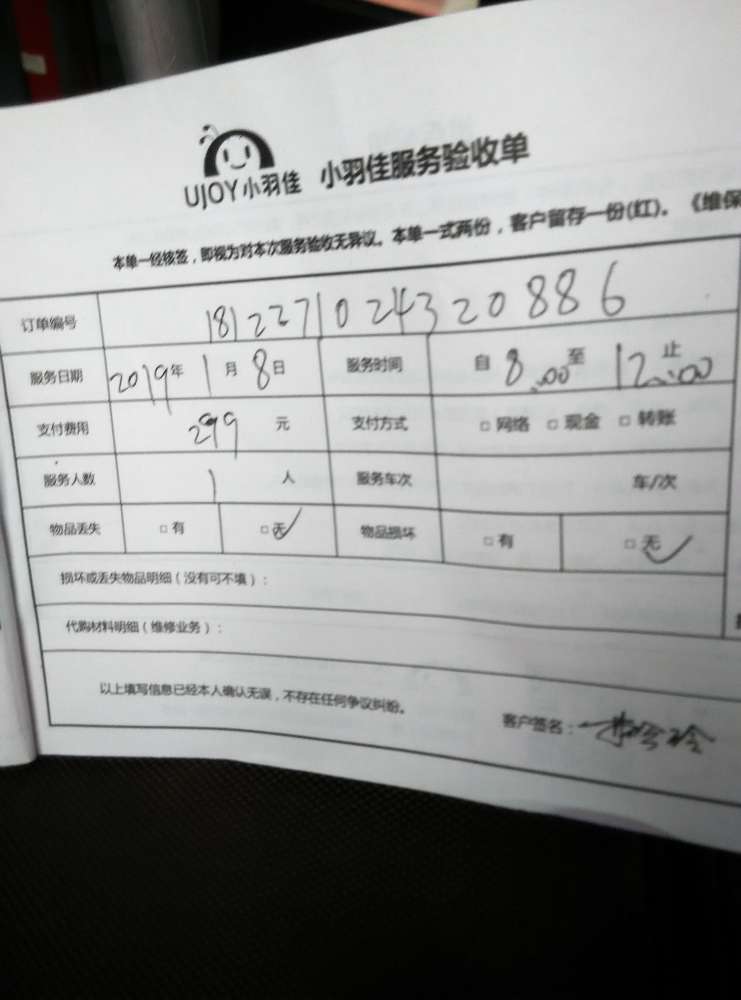 UJOY小羽佳 小羽佳服务验收单
本单一经核签，即视为对本次服务验收无异议。本单一式两份，客户留存一份(红)。《维保
订单编号 1812271024320886
服务日期 2019年1月8日 服务时间 自8:00至12:00止
支付费用 299元 支付方式 □网络 □现金 □转账
服务人数 1人 服务车次 车/次
物品丢失 □有 □无✓ 物品损坏 □有 □无✓
损坏或丢失物品明细（没有可不填）：
代购材料明细（维修业务）：
以上填写信息已经本人确认无误，不存在任何争议纠纷。
客户签名：